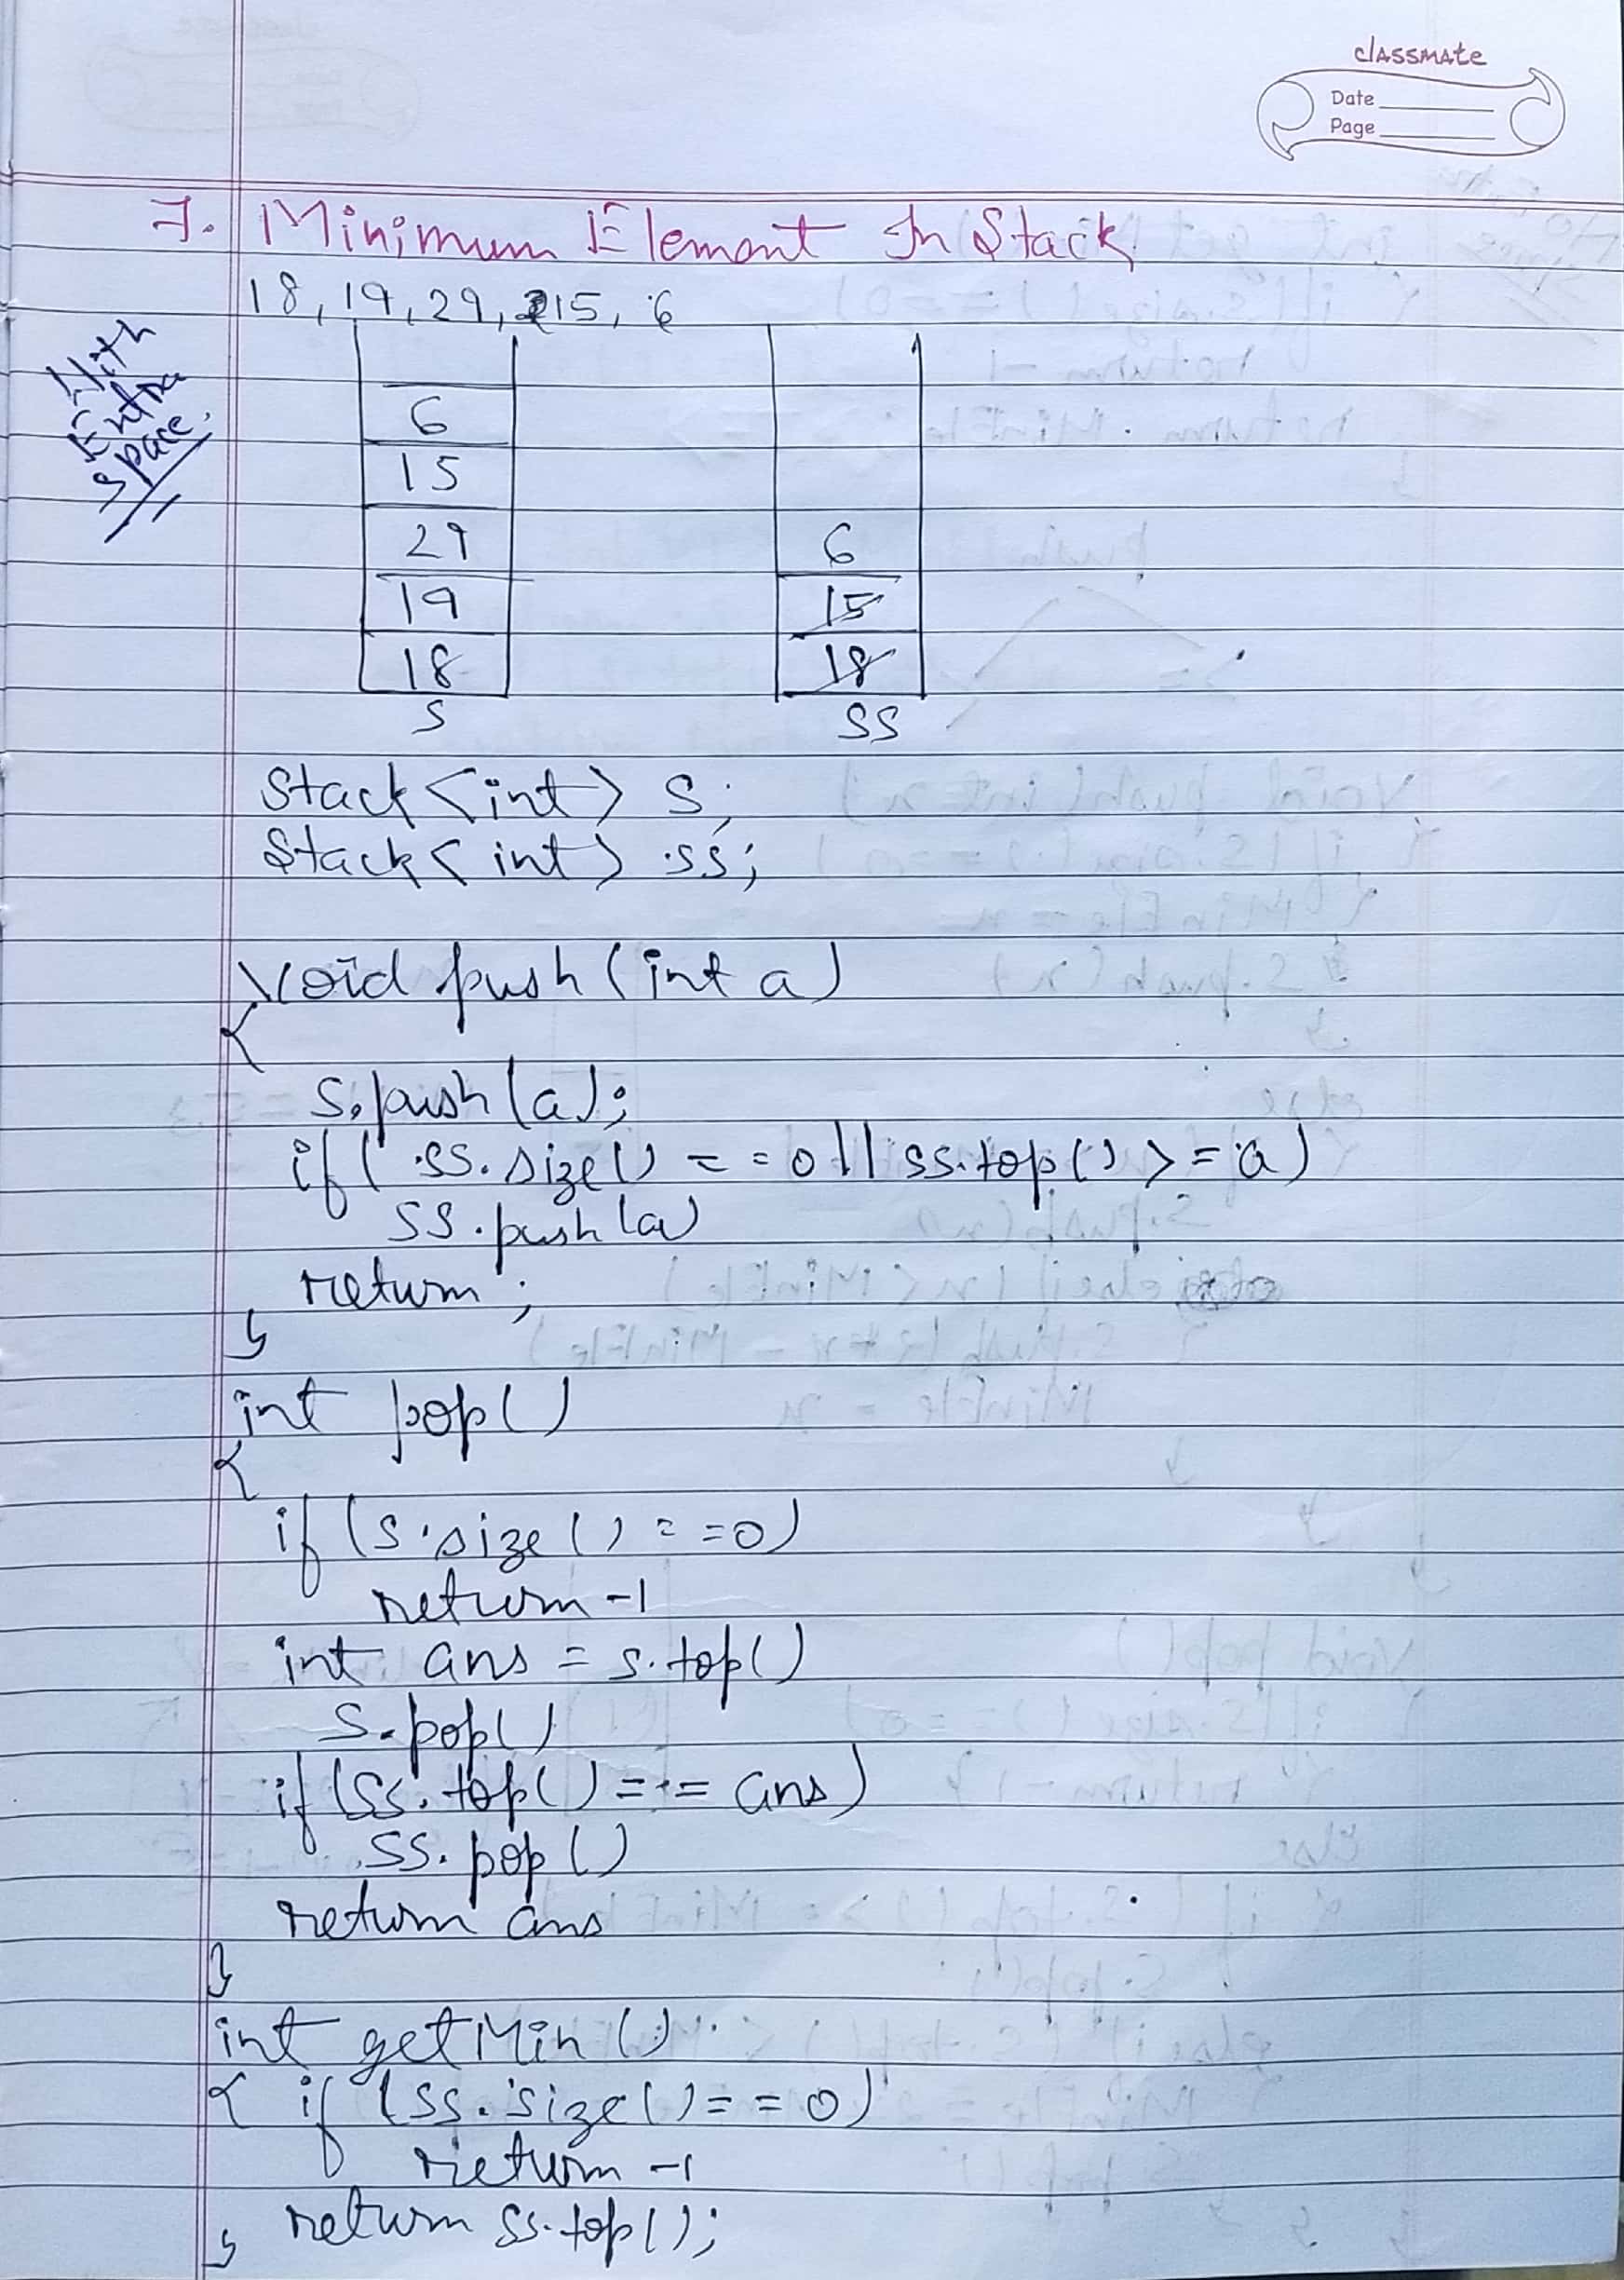 classmate
Date
Page
7. Minimum Element In Stack
18, 19, 29, 15, 6
With
Extra
space.
6
15
29
19
18
S
6
15
18
SS
Stack<int> S;
Stack<int> ss;
Void push (int a)
{
S.push(a);
if( ss.size() == 0 || ss.top() >= a)
SS.push(a)
return;
}
int pop()
{
if (s.size() == 0)
return -1
int ans = s.top()
S.pop()
if(SS.top() == ans)
SS.pop()
return ans
}
int getMin()
{ if (ss.size() == 0)
return -1
return ss.top();
}